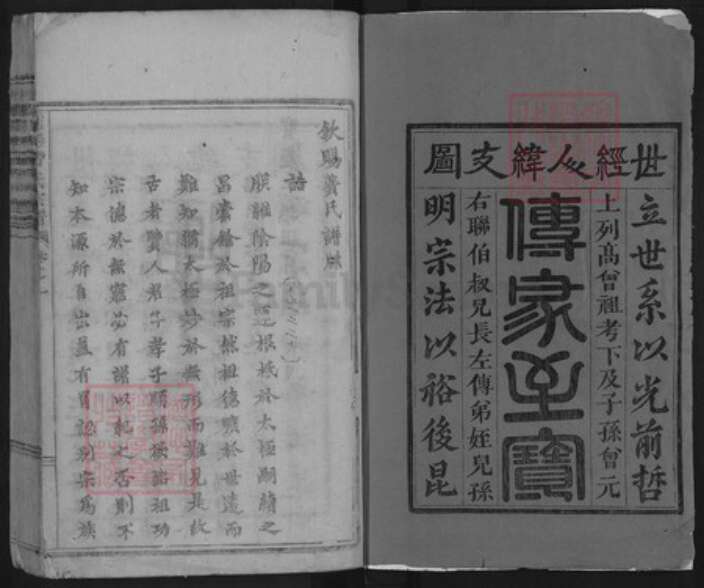 世經人緯支圖
立世系以光前哲
上列高曾祖考下及子孫曾元
傳家至寶
右聯伯叔兄長左傳弟姪兒孫
明宗法以裕後昆
欽賜黃氏譜牒
誥
朕維陰陽之運根核於太極嗣續之
昌索餘於祖宗然祖德顯於世遠而
難知猶太極妙於無形而難見是故
古者賢人君子孝子順孫
宗德於無窮必有譜以紀之否則不
知本源所自出